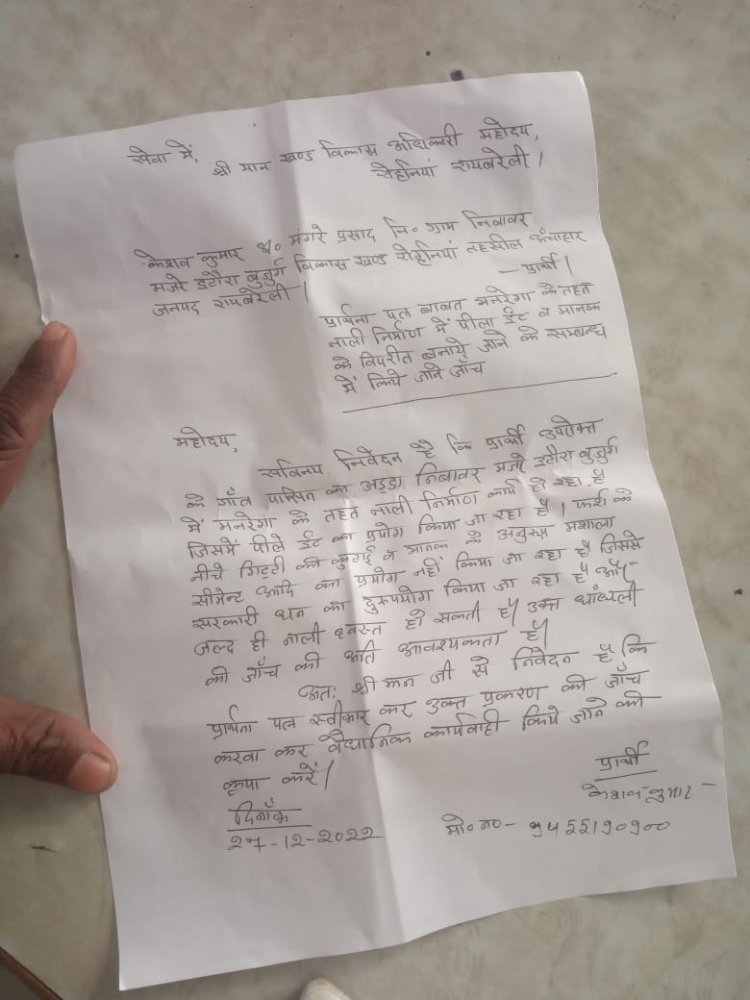 सेवा में,
श्री मान खण्ड विकास अधिकारी महोदय,
रोहनियां रायबरेली।
केशव कुमार S/o मंगरे प्रसाद नि० ग्राम निबावर
मजरे इटौरा बुजुर्ग विकास खण्ड रोहनियां तहसील ऊँचाहार
जनपद रायबरेली। —प्रार्थी।
प्रार्थना पत्र बावत मनरेगा के तहत
नाली निर्माण में पीला ईट व मानक
के विपरीत बनाये जाने के सम्बन्ध
में किये जाने जाँच
महोदय,
सविनय निवेदन है कि प्रार्थी उपरोक्त
के गाँव पासिन का अड्डा निबावर मजरे इटौरा बुजुर्ग
में मनरेगा के तहत नाली निर्माण कार्य हो रहा है
जिसमें पीले ईट का प्रयोग किया जा रहा है। फर्श के
नीचे गिट्टी की कुटाई व मानक के अनुरूप मशाला
सीमेन्ट आदि का प्रयोग नहीं किया जा रहा है जिससे
सरकारी धन का दुरुपयोग किया जा रहा है और
जल्द ही नाली ध्वस्त हो सकती है। उक्त धाँधली
की जाँच की अति आवश्यकता है।
अतः श्री मान जी से निवेदन है कि
प्रार्थना पत्र स्वीकार कर उक्त प्रकरण की जाँच
करवा कर वैधानिक कार्यवाही किये जाने की
कृपा करें।
प्रार्थी
केशव कुमार
दिनाँक
27-12-2022
मो०न०- ९४५५१९०९००